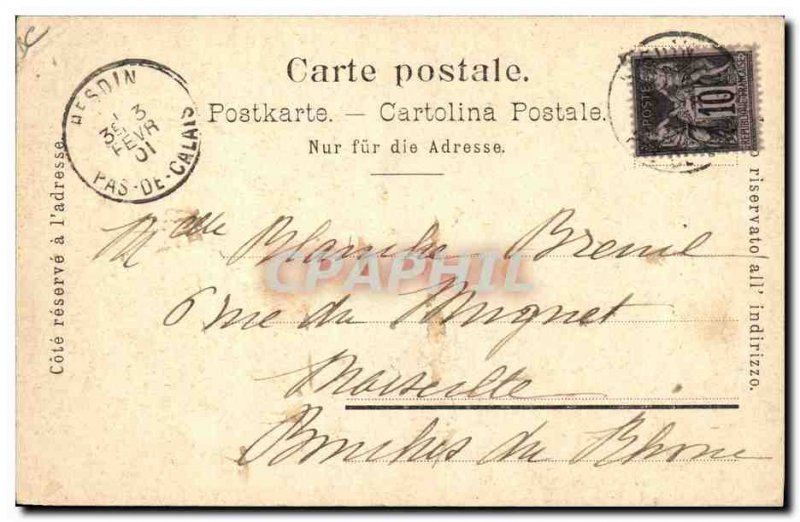 HESDIN
3
FEVR
01
PAS-DE-CALAIS
Carte postale.
Postkarte. — Cartolina Postale.
Nur für die Adresse.
POSTES
10
REPUBLIQUE FRANÇAISE
Côté réservé à l'adresse.
riservato all' indirizzo.
Melle Blanche Breuil
CPAPHIL
6 rue du Mignet
Marseille
Bouches du Rhône